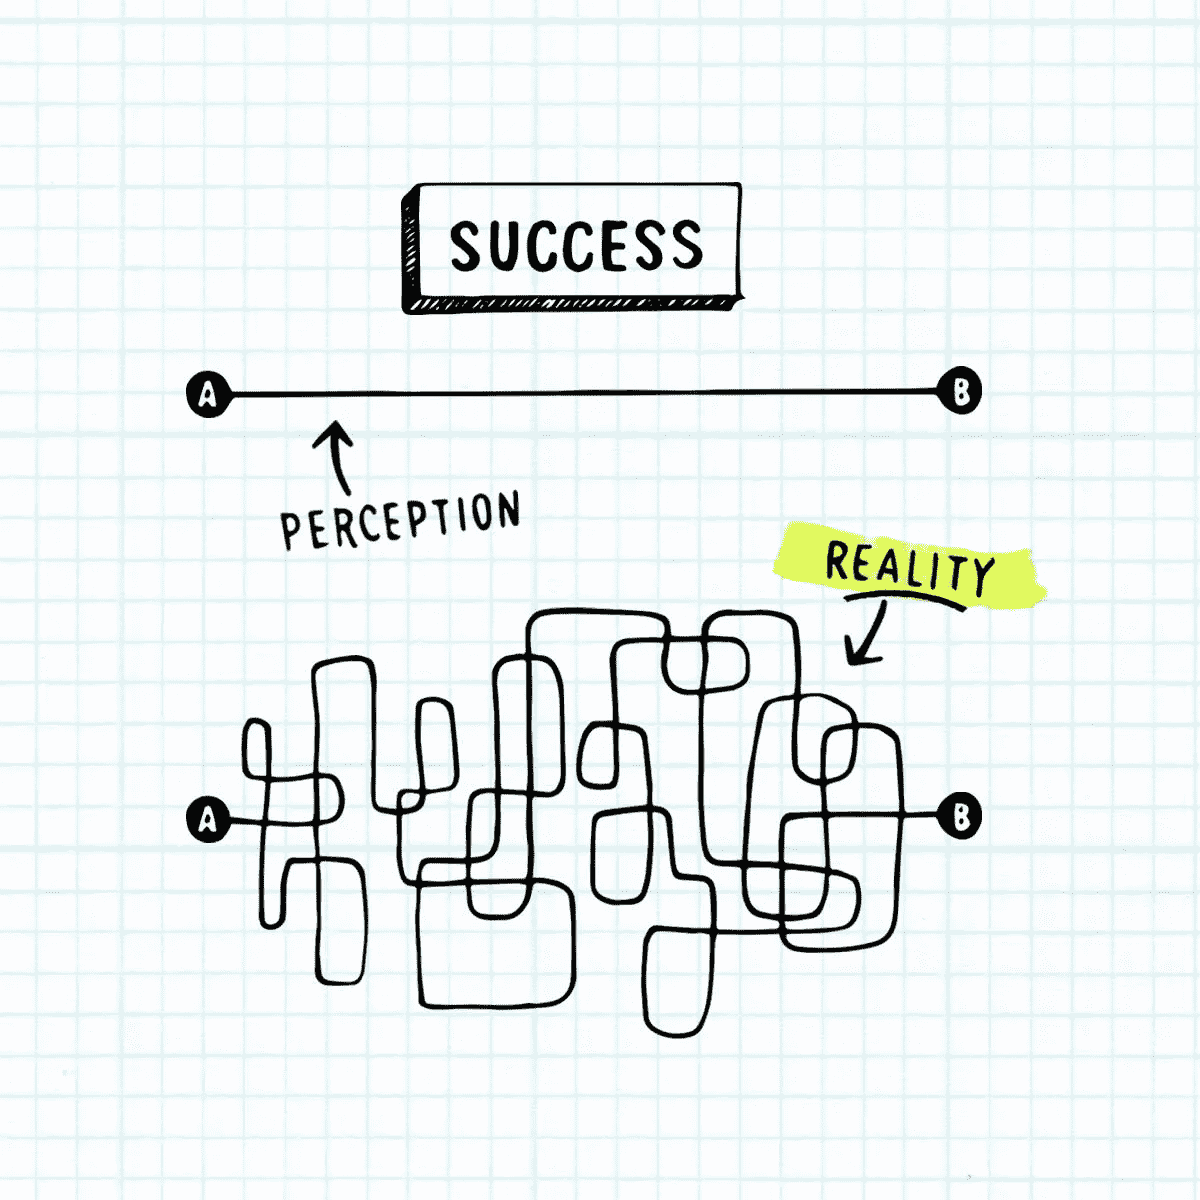 SUCCESS
A B
PERCEPTION
REALITY
A B